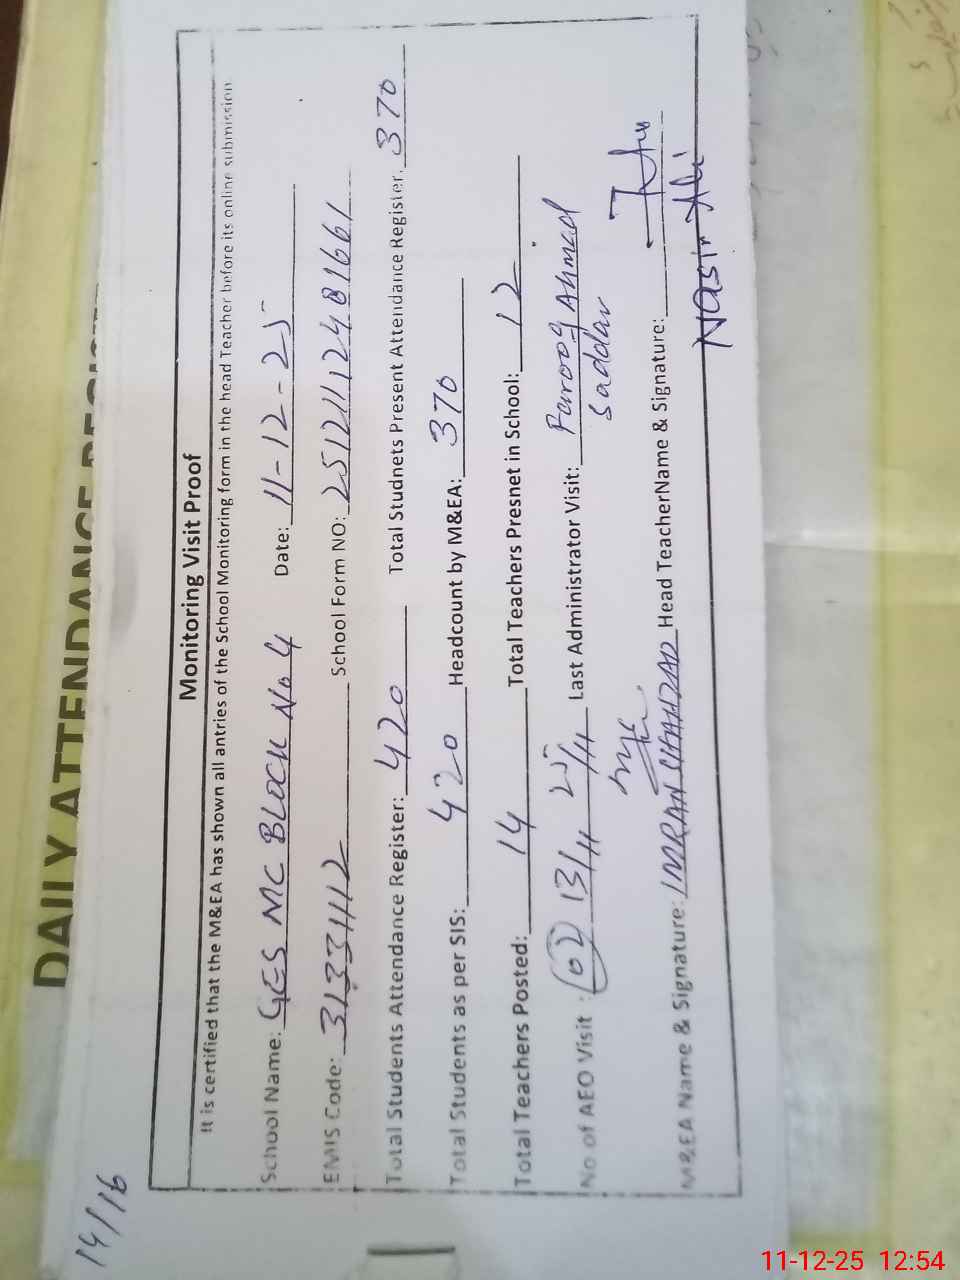 DAILY ATTENDANCE REGISTER
14/16
Monitoring Visit Proof
It is certified that the M&EA has shown all antries of the School Monitoring form in the head Teacher before its online submission
School Name: GES MC BLOCK No 4 Date: 11-12-25
EMIS Code: 31331112 School Form NO: 25121112481661
Total Students Attendance Register: 420 Total Studnets Present Attendance Register: 370
Total Students as per SIS: 420 Headcount by M&EA: 370
Total Teachers Posted: 14 Total Teachers Presnet in School: 12
No of AEO Visit : 02 13/11 25/11 Last Administrator Visit: Farooq Ahmad
saddar
M&EA Name & Signature: IMRAN SHAHZAD Head TeacherName & Signature:
Nasir Ali
11-12-25 12:54